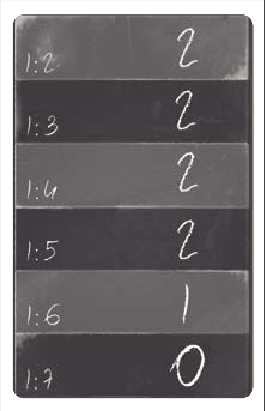 1:2 2
1:3 2
1:4 2
1:5 2
1:6 1
1:7 0